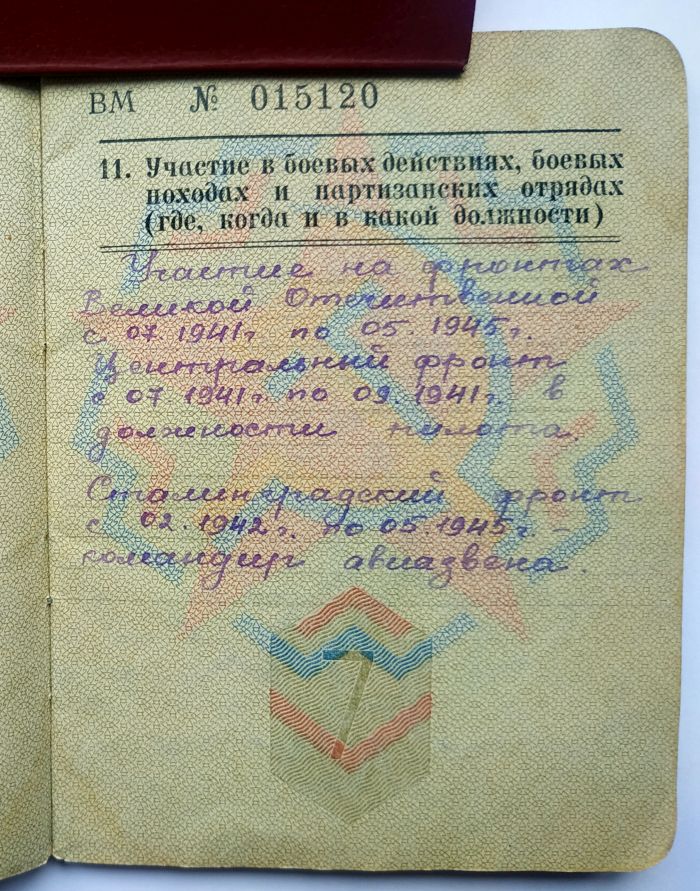 ВМ № 015120
11. Участие в боевых действиях, боевых
походах и партизанских отрядах
(где, когда и в какой должности)
Участие на фронтах
Великой Отечественной
с 07.1941г. по 05.1945г.
Центральный фронт
с 07.1941г. по 09.1941г. в
должности пилота.
Сталинградский фронт
с 02.1942г. по 05.1945г. –
командир авиазвена.
7